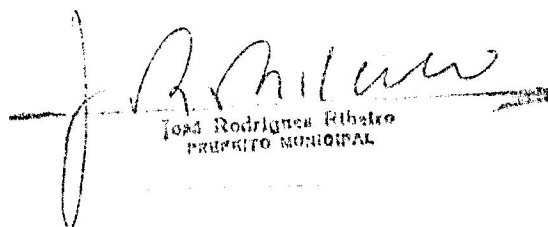 J R Ribeiro
José Rodrigues Ribeiro
PREFEITO MUNICIPAL